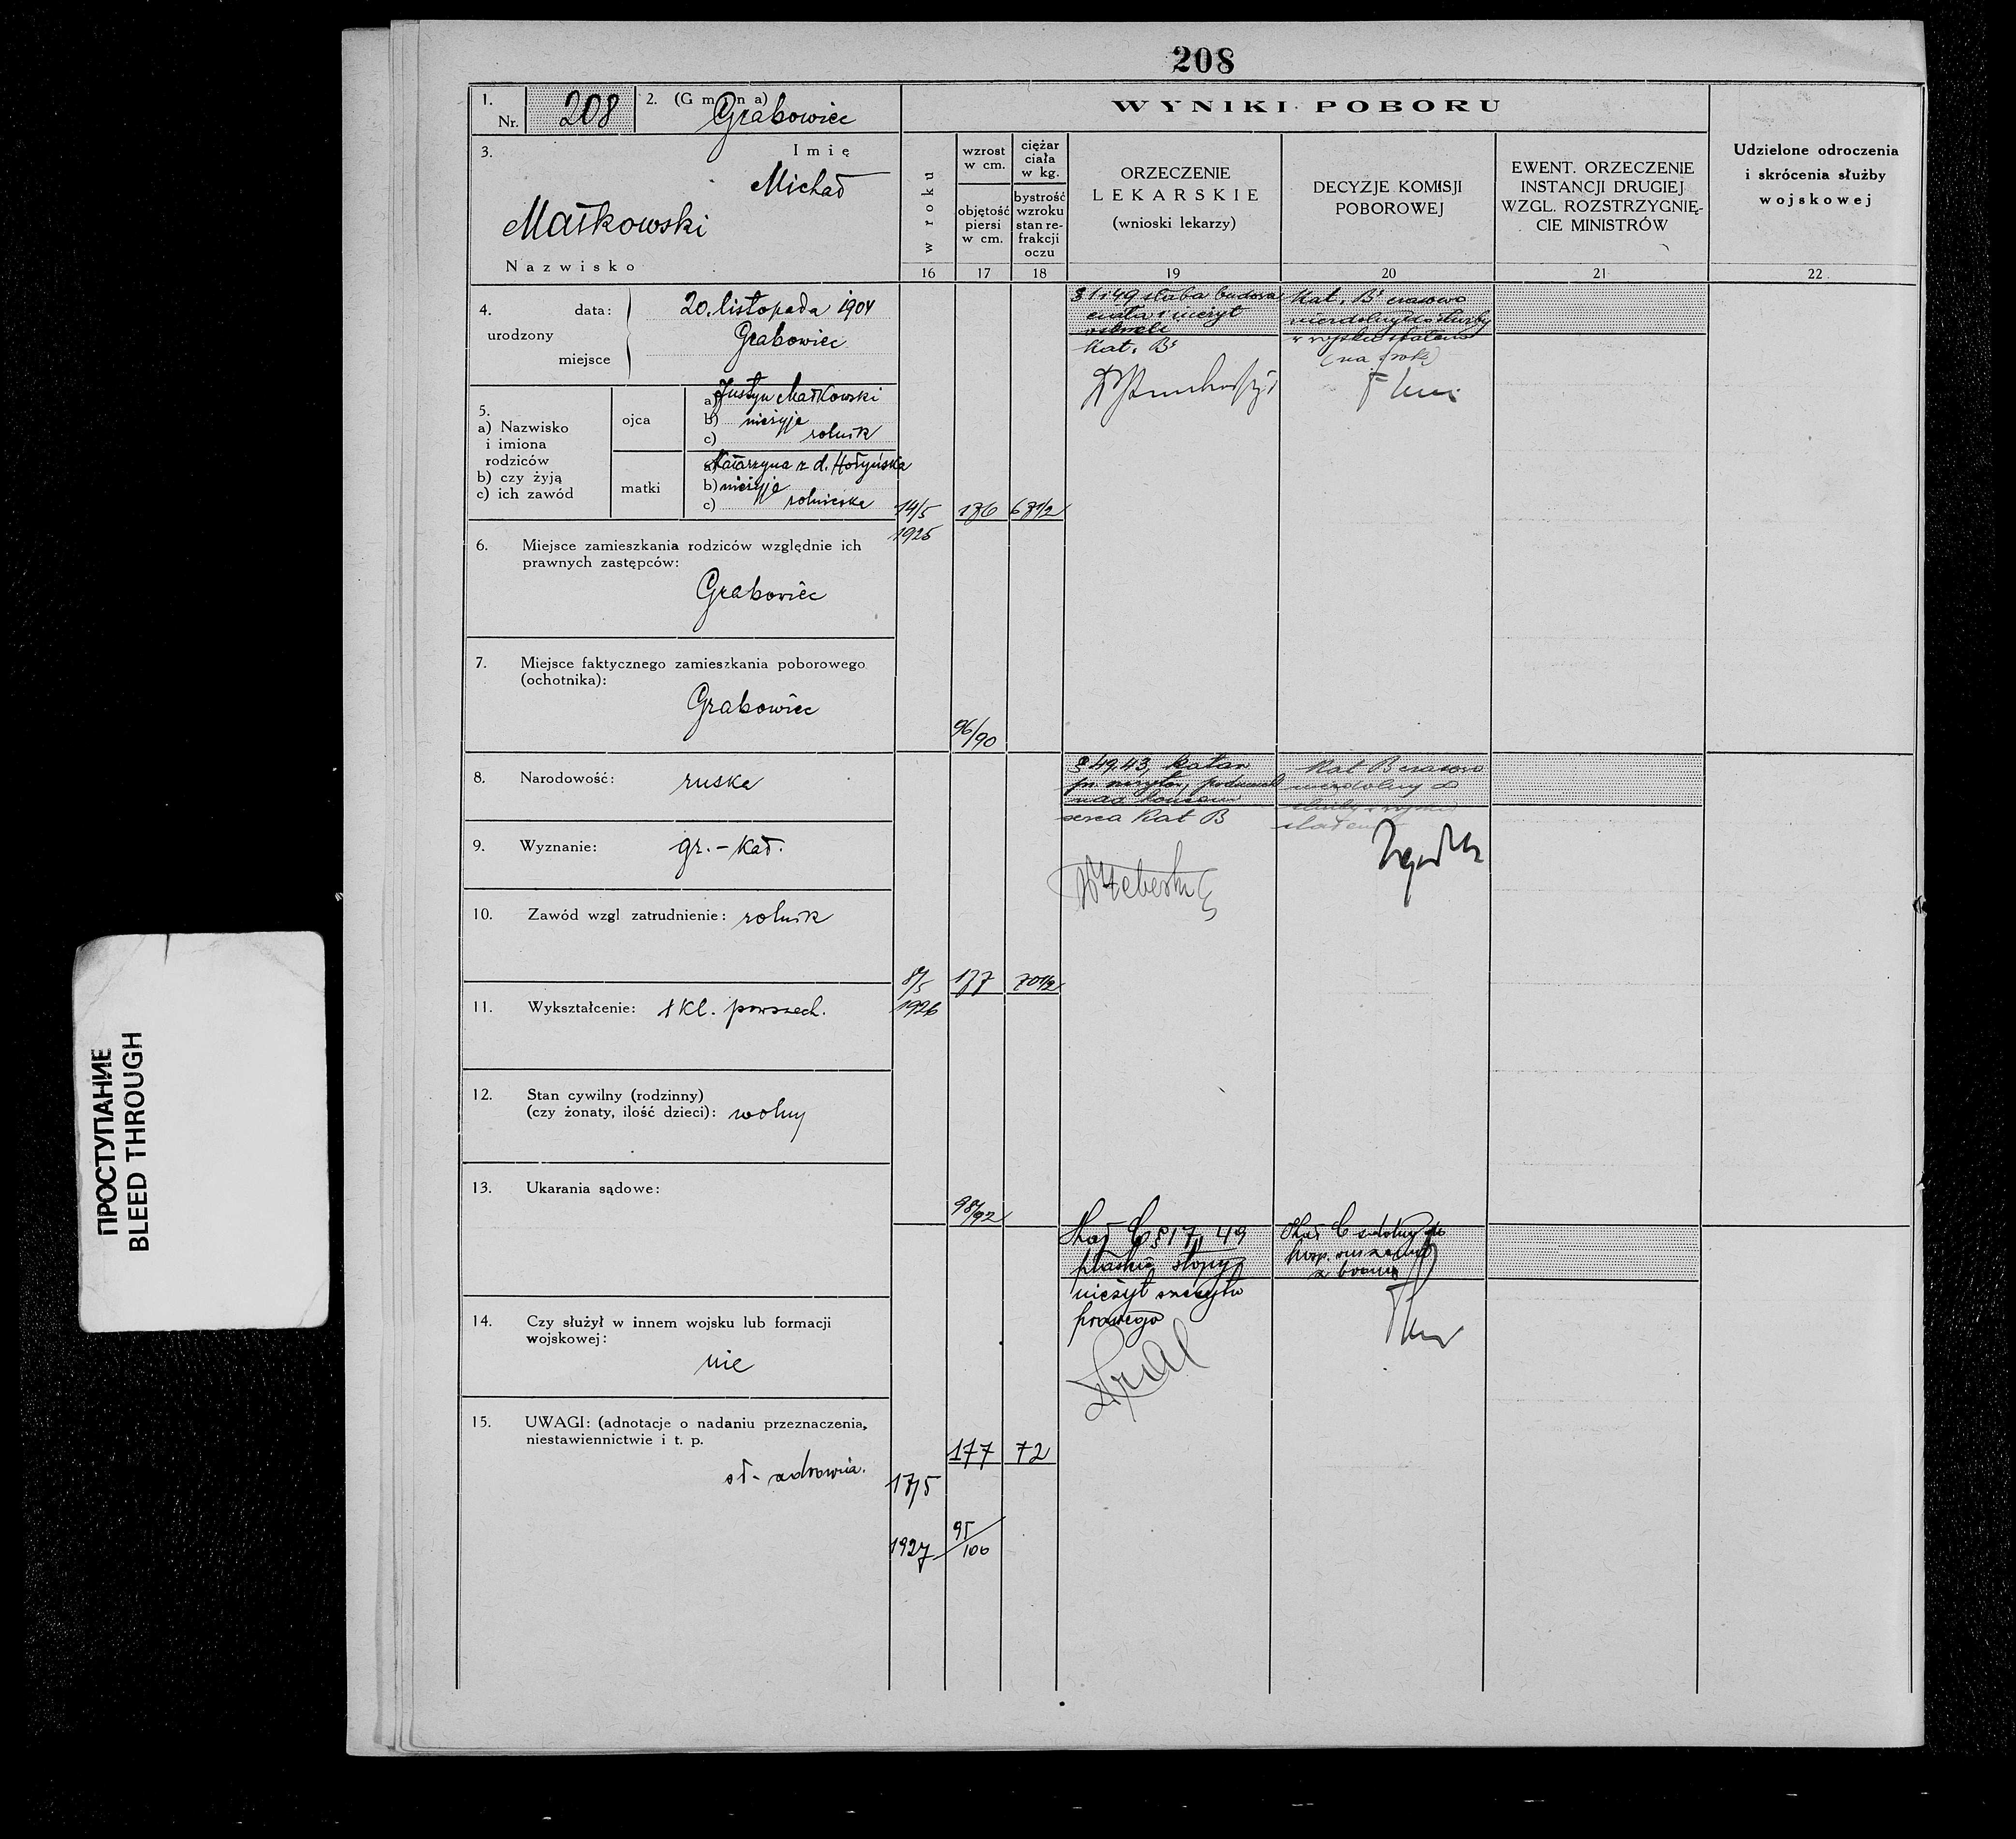 208
1.
Nr. 208
2. (Gmina) Grabowiec
3. Imię
Michał
Małkowski
Nazwisko
4. urodzony
data: 20. listopada 1904
miejsce Grabowiec
5.
a) Nazwisko
i imiona
rodziców
b) czy żyją
c) ich zawód
ojca
a) Justyn Małkowski
b) nieżyje
c) rolnik
matki
a) Katarzyna z d. Hołyńska
b) nieżyje
c) rolniczka
6. Miejsce zamieszkania rodziców względnie ich
prawnych zastępców:
Grabowiec
7. Miejsce faktycznego zamieszkania poborowego
(ochotnika):
Grabowiec
8. Narodowość: ruska
9. Wyznanie: gr.-kat.
10. Zawód wzgl zatrudnienie: rolnik
11. Wykształcenie: 1 kl. powszech.
12. Stan cywilny (rodzinny)
(czy żonaty, ilość dzieci): wolny
13. Ukarania sądowe:
14. Czy służył w innem wojsku lub formacji
wojskowej:
nie
15. UWAGI: (adnotacje o nadaniu przeznaczenia,
niestawiennictwie i t. p.
zdrowia.
WYNIKI POBORU
w roku
16
wzrost
w cm.
objętość
piersi
w cm.
17
ciężar
ciała
w kg.
bystrość
wzroku
stan re-
frakcji
oczu
18
ORZECZENIE
LEKARSKIE
(wnioski lekarzy)
19
DECYZJE KOMISJI
POBOROWEJ
20
EWENT. ORZECZENIE
INSTANCJI DRUGIEJ
WZGL. ROZSTRZYGNIĘ-
CIE MINISTRÓW
21
Udzielone odroczenia
i skrócenia służby
wojskowej
22
14/5
1925
176
67 1/2
96/90
§ 1 i 49 słaba budowa
ciała i nieżyt
Kat. B
Kat. B czasowo
niezdolny do służby
w wojsku stałem
8/5
1926
177
70 1/2
98/92
§ 49, 43,
serca Kat B
Kat B czasowo
niezdolny do
służby w
stałem
17/5
1927
177
72
95/100
Kat C § 17, 49
płaskie stopy,
nieżyt szczytu
prawego
Kat C zdolny do
posp. ruszenia
z bronią
ПРОСТУПАНИЕ
BLEED THROUGH